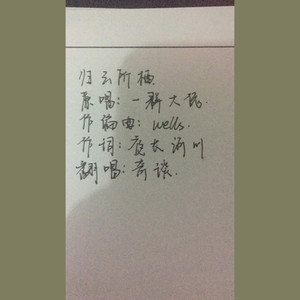 归云所栖
原唱：一群大佬
作编曲：wells.
作词：鹿长河川
翻唱：奇谈.